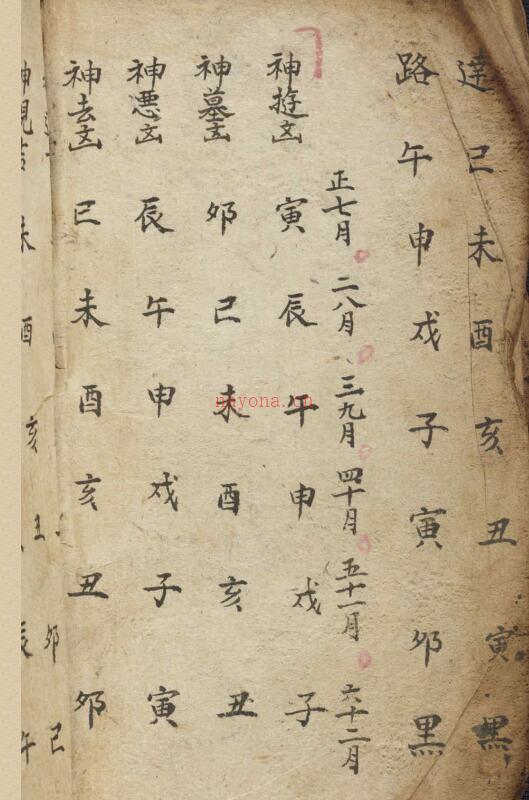 達 己 未 酉 亥 丑 寅 黑
路 午 申 戌 子 寅 卯 黑
正七月 二八月 三九月 四十月 五十一月 六十二月
神遊凶 寅 辰 午 申 戌 子
神墓凶 卯 己 未 酉 亥 丑
神悪凶 辰 午 申 戌 子 寅
神去凶 巳 未 酉 亥 丑 卯
nayona.cn